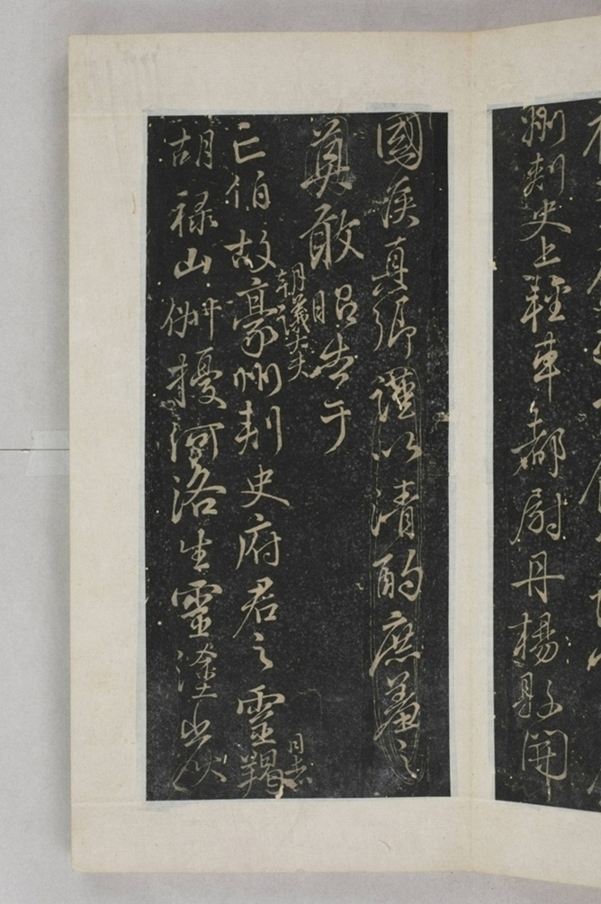 州刺史上輕車都尉丹楊縣開
國侯真卿謹以清酌庶羞之
奠敢昭告于
朝議大夫
亡伯故豪州刺史府君之靈羯
日者
胡祿山俶擾河洛生靈塗炭